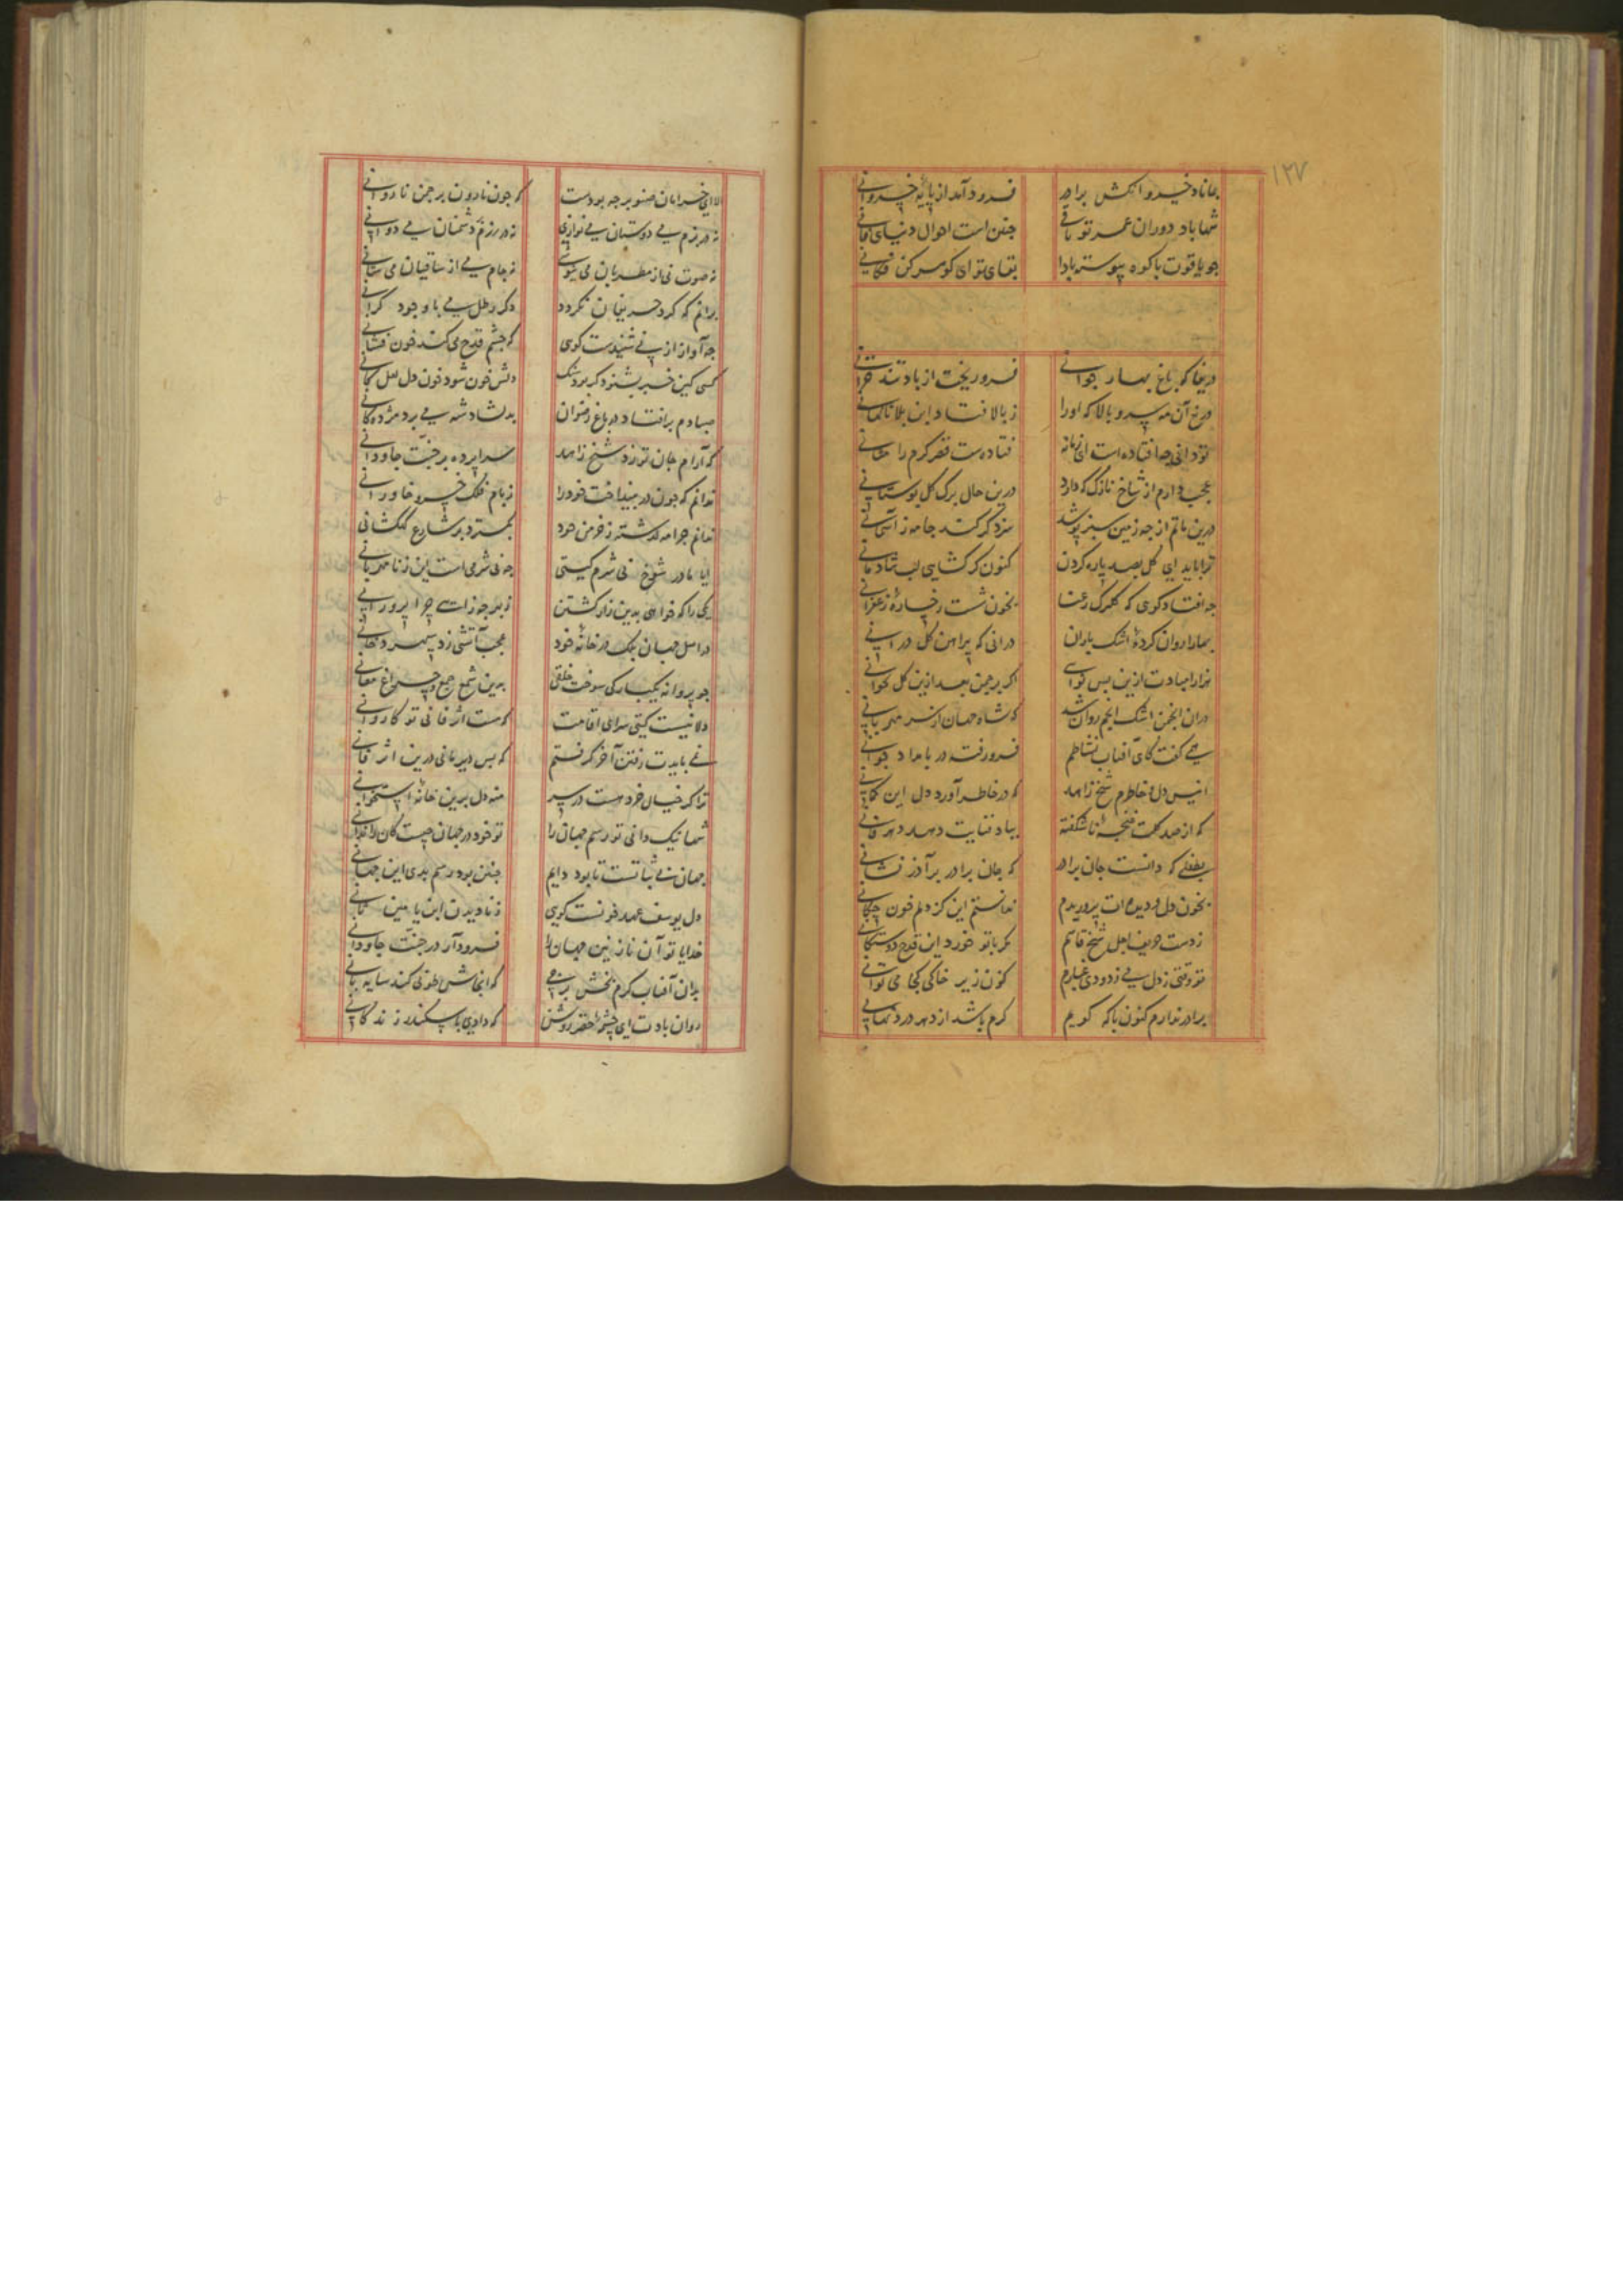 ۱۲۷
بماناد خسرو اتکش برادر فرود آمد از پایه خسروانی
شها باد دوران عمر تو باقی جنن است احوال دنیای فانی
جو یاقوت با کوه پیوسته بادا بقای تو ای کوهر کن فکانی
دریغا که باغ بهار جوانی فرو ریخت از باد تند خزانی
دریغ آن مه سرو بالا که او را ز بالا فتاد این بلا ناکهانی
تو دانی چه افتاده است ای زمانه فتادست قصر کرم را
عجب دارم از شاخ نازک که دارد درین حال برک کل بوستانی
درین ماتم از جه زمین سبز پوشد سزد کر کند جامه ز آسمانی
ترا باید ای کل بصد پاره کردن کنون کر کشایی لب شادمانی
جه افتاد کویی که کلبرک رعنا بخون شست رخساره زعفرانی
بهارا روان کرده اشک باران در آنی که پیراهن کل درانی
هزارا مبادت ازین بس نوایی اکر بر جمن بعد ازین کل نخوانی
در آن انجمن اشک انجم روان شد که شاه جهان از سر مهربانی
همی کفت کای آفتاب نشاطم فرو رفته در بامداد جوانی
انیس دل و خاطرم شیخ زاهد که در خاطر آورد دل این کمانی
که از صد کلت غنجه نا شکفته بباد فنایت دهد دهر فانی
بطفلی که دانست جان برادر که جان برادر برآذر نشانی
بخون دل و دیده ات پروریدم ندانستم این کز دلم خون جکانی
ز دست حریف اجل شیخ قاتم مکر با تو خورد این قدح دوستکانی
تو وقتی ز دل می زدودی غبارم کنون زیر خاکی کجا می توانی
برادر ندارم کنون با که کویم کرم باشد از دهر درد نهانی
الا ای خرامان صنوبر جه بودت که جون نارون بر جمن نا روانی
نه در بزم می دوستان می نوازی نه در رزم دشمنان می دوانی
نه صوت نی از مطربان می نیوشی نه جام می از ساقیان می ستانی
برانم که کرد حریفان نکردد دکر رطل می با وجود کرانی
جه آواز از نی شنیدست کوی که جشم قدح می کند خون فشانی
کسی کین خبر بشنود کر بود سنک دلش خون شود خون دل لعل کانی
صبا دم بر افتاد در باغ رضوان بدلشاد شه می برد مژدکانی
که آرام جان تو زد شیخ زاهد سراپرده بر جنت جاودانی
ندانم که جون در نینداخت خود را ز بام فلک خسرو خاورانی
ندانم جرا مه نکشته ز خرمن خود بکسترد بر شارع کهکشانی
ایا مادر شوخ بی شرم کیتی جه بی شرمی است این ز نامهربانی
یکی را که خواهی بدین زار کشتن ز بهر جه زاری جرا پرورانی
در اصل جهان ملک در خانه خود عجب آتشی زد سپهر دخانی
جو پروانه یکبارکی سوخت خلقی بدین شمع جمع و جراغ معانی
دلا نیست کیتی سرای اقامت که هست اثر فانی تو کاروانی
نمی بایدت رفتن آخر کرفتم که بس دیر مانی درین اثر فانی
ترا کر خیال خرد هست در سر منه دل برین خانه استخوانی
شها نیک دانی تو رسم جهان را تو خود در جهان جیست کان را ندانی
جهان بی ثباتست تا بود دایم جنن بود رسم بدی این جهانی
دل یوسف عهد خونست کویی ز نادیدن ابن یامین ثانی
خدایا تو آن نازنین جهان را فرود آر در جنت جاودانی
بدان آفتاب کرم بخش برجی که انجاش طوبی کند سایه بانی
روان بادت ای چشمه خضر روشن که دادی با سکندر زندکانی